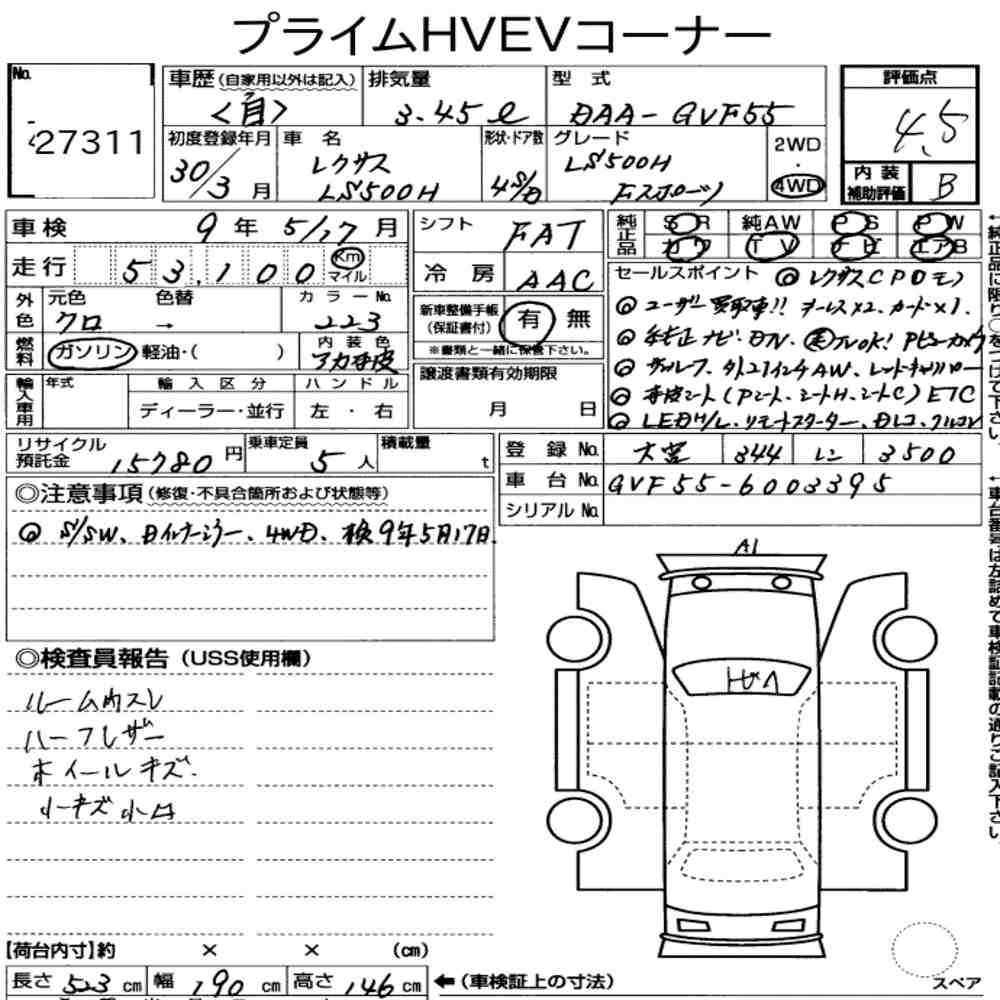 プライムHVEVコーナー
No.
27311
車歴(自家用以外は記入) 排気量 型式 評価点
<自> 3.45ℓ DAA-GVF55 4.5
初度登録年月 車名 形状・ドア数 グレード 2WD・4WD 内装補助評価 B
30/3月 レクサス LS500H 4S/D LS500H Fスポーツ
車検 9年 5/17月 シフト FAT 純正品 SR 純AW PS PW
カワ TV ナビ エアB
走行 53,100 Km マイル 冷房 AAC
セールスポイント ◎レクサスCPOモノ
外色 元色 色替 カラーNo. 新車整備手帳(保証書付) 有 無
クロ → 223 ※書類と一緒に保管下さい。
◎ユーザー買取車!! キーレス×2、カード×1
燃料 ガソリン 軽油・( ) 内装色 アカ本皮
◎純正ナビ・Dフル、走フルOK! Pビューカメラ
輸入車用 年式 輸入区分 ハンドル 譲渡書類有効期限
◎サンルーフ、外21インチAW、レッドキャリパー
ディーラー・並行 左・右 月 日
◎本皮シート(Pシート、シートH、シートC) ETC
◎LEDH/L、リモートスターター、Dレコ、クルコン
リサイクル預託金 15780円 乗車定員 5人 積載量 t
登録No. 大宮 344 レ 3500
車台No. GVF55-6003395
シリアルNo.
◎注意事項(修復・不具合箇所および状態等)
◎S/SW、Dインナーミラー、4WD、検9年5月17日
A1
◎検査員報告(USS使用欄)
ルーム内スレ
ハーフレザー
ホイールキズ.
小キズ小凹
【荷台内寸】約 × × (cm)
長さ 523cm 幅 190cm 高さ 146cm ←(車検証上の寸法)
スペア
←純正品に限り○をつけて下さい。
←車台番号は左詰めで車検証記載の通りご記入下さい。